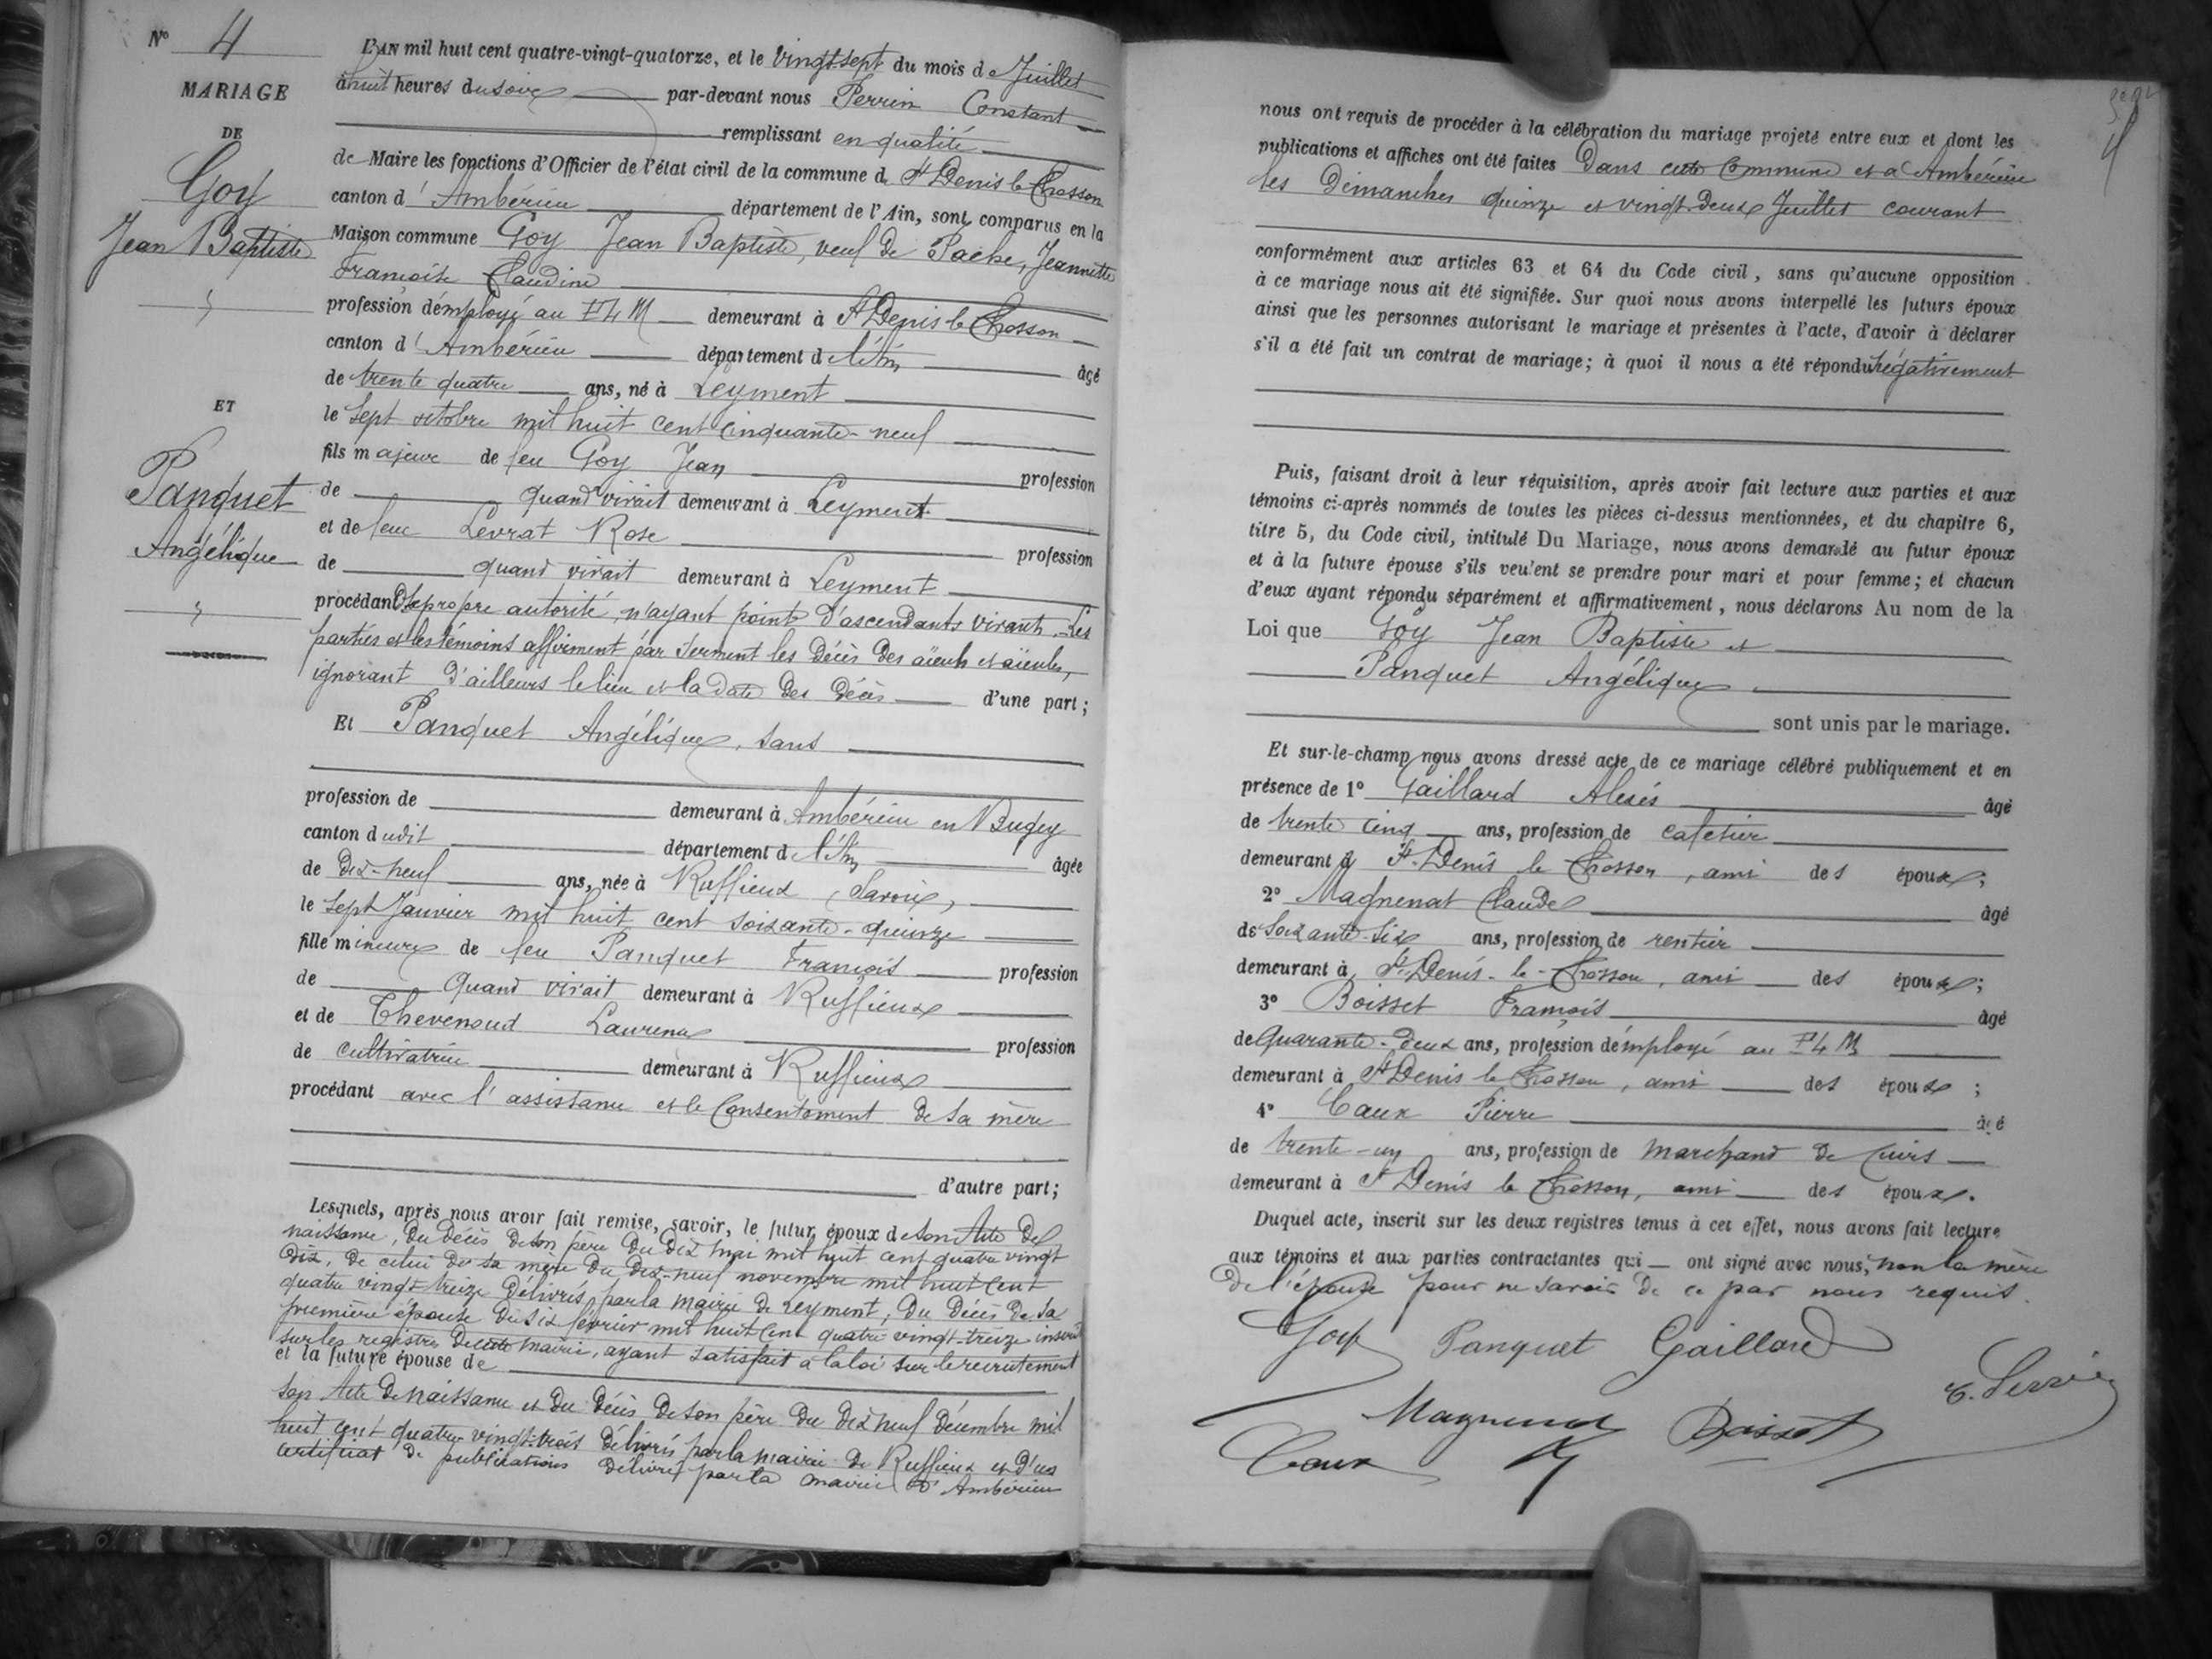 N° 4
MARIAGE
DE
Goy
Jean Baptiste
ET
Panquet
Angélique
L'AN mil huit cent quatre-vingt-quatorze, et le vingt-sept du mois de Juillet
à huit heures du soir par-devant nous Perrin Constant
remplissant en qualité
de Maire les fonctions d'Officier de l'état civil de la commune d St Denis le Chosson
canton d'Ambérieu département de l'Ain, sont comparus en la
Maison commune Goy Jean Baptiste, veuf de Pache, Jeannette
Françoise Claudine
profession d'employé au P L M demeurant à St Denis le Chosson
canton d'Ambérieu département d l'Ain âgé
de trente quatre ans, né à Leyment
le sept octobre mil huit cent cinquante-neuf
fils majeur de feu Goy Jean profession
de quand vivait demeurant à Leyment
et de feue Levrat Rose profession
de quand vivait demeurant à Leyment
procédant de sa propre autorité, n'ayant point d'ascendants vivants. Les
parties et les témoins affirment par serment les décès des aïeuls et aïeules,
ignorant d'ailleurs le lieu et la date des décès d'une part ;
Et Panquet Angélique, sans
profession de demeurant à Ambérieu en Bugey
canton dudit département d l'Ain âgée
de dix-neuf ans, née à Ruffieux (Savoie)
le sept Janvier mil huit cent soixante-quinze
fille mineure de feu Panquet François profession
de quand vivait demeurant à Ruffieux
et de Thevenoud Laurence profession
de cultivatrice demeurant à Ruffieux
procédant avec l'assistance et le consentement de sa mère
d'autre part ;
Lesquels, après nous avoir fait remise, savoir, le futur époux de son Acte de
naissance, du décès de son père du dix mai mil huit cent quatre vingt
dix, de celui de sa mère du dix-neuf novembre mil huit cent
quatre vingt-treize délivrés par la mairie de Leyment ; du décès de sa
première épouse du six février mil huit cent quatre-vingt-treize inscrit
sur les registres de cette mairie, ayant satisfait à la loi sur le recrutement
et la future épouse de
son Acte de naissance et du décès de son père du dix neuf décembre mil
huit cent quatre-vingt-trois délivrés par la mairie de Ruffieux et d'un
certificat de publications délivré par la mairie d'Ambérieu
nous ont requis de procéder à la célébration du mariage projeté entre eux et dont les
publications et affiches ont été faites dans cette commune et à Ambérieu
les Dimanches quinze et vingt-deux Juillet courant
conformément aux articles 63 et 64 du Code civil, sans qu'aucune opposition
à ce mariage nous ait été signifiée. Sur quoi nous avons interpellé les futurs époux
ainsi que les personnes autorisant le mariage et présentes à l'acte, d'avoir à déclarer
s'il a été fait un contrat de mariage ; à quoi il nous a été répondu négativement
Puis, faisant droit à leur réquisition, après avoir fait lecture aux parties et aux
témoins ci-après nommés de toutes les pièces ci-dessus mentionnées, et du chapitre 6,
titre 5, du Code civil, intitulé Du Mariage, nous avons demandé au futur époux
et à la future épouse s'ils veulent se prendre pour mari et pour femme ; et chacun
d'eux ayant répondu séparément et affirmativement, nous déclarons Au nom de la
Loi que Goy Jean Baptiste et
Panquet Angélique
sont unis par le mariage.
Et sur-le-champ nous avons dressé acte de ce mariage célébré publiquement et en
présence de 1° Gaillard Alexis âgé
de trente cinq ans, profession de cafetier
demeurant à St Denis le Chosson, ami des époux ;
2° Magnenat Claude âgé
de soixante-six ans, profession de rentier
demeurant à St Denis-le-Chosson, ami des époux ;
3° Boisset François âgé
de quarante-deux ans, profession d'employé au P L M
demeurant à St Denis le Chosson, ami des époux ;
4° Caux Pierre âgé
de trente-un ans, profession de marchand de cuirs
demeurant à St Denis le Chosson, ami des époux.
Duquel acte, inscrit sur les deux registres tenus à cet effet, nous avons fait lecture
aux témoins et aux parties contractantes qui ont signé avec nous, non la mère
de l'épouse pour ne savoir de ce par nous requis.
Goy Panquet Gaillard
C. Perrin
Magnenat Boisset
Caux